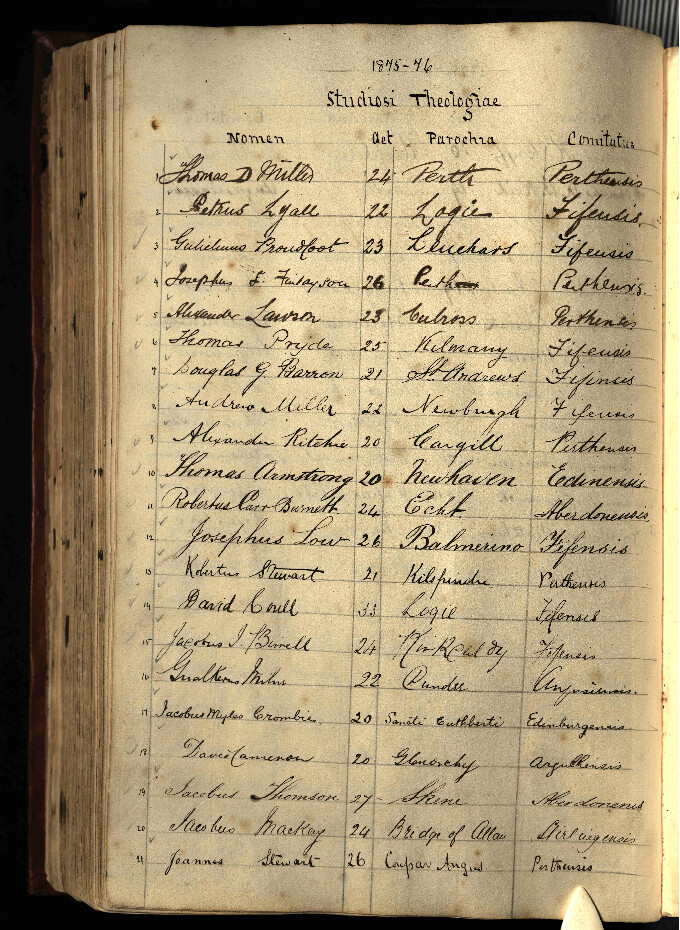 1875-76
Studiosi Theologiae
Nomen Aet Parochia Comitatus
1 Thomas D Miller 24 Perth Perthensis
2 Petrus Lyall 22 Logie Fifensis
3 Gulielmus Proudfoot 23 Leuchars Fifensis
4 Josephus F. Finlayson 26 Perth Perthensis.
5 Alexander Lawson 23 Culross Perthensis
6 Thomas Pryde 25 Kilmany Fifensis
7 Douglas G. Barron 21 St. Andrews Fifensis
8 Andrew Miller 22 Newburgh Fifensis
9 Alexander Ritchie 20 Cargill Perthensis
10 Thomas Armstrong 20 Newhaven Edinensis
11 Robertus Carr Burnett 24 Echt Aberdonensis
12 Josephus Low 26 Balmerino Fifensis
13 Robertus Stewart 21 Kilspindie Perthensis
14 David Coull 33 Logie Fifensis
15 Jacobus J. Birrell 24 Kirkcaldy Fifensis
16 Gualterus Milne 22 Dundee
17 Jacobus Myles Crombie 20 Sancti Cuthberti Edinburgensis
18 David Cameron 20 Glenorchy
19 Jacobus Thomson 27 Skene Aberdonensis
20 Jacobus Mackay 24 Bridge of Allan Stirlingensis
21 Joannes Stewart 26 Coupar Angus Perthensis